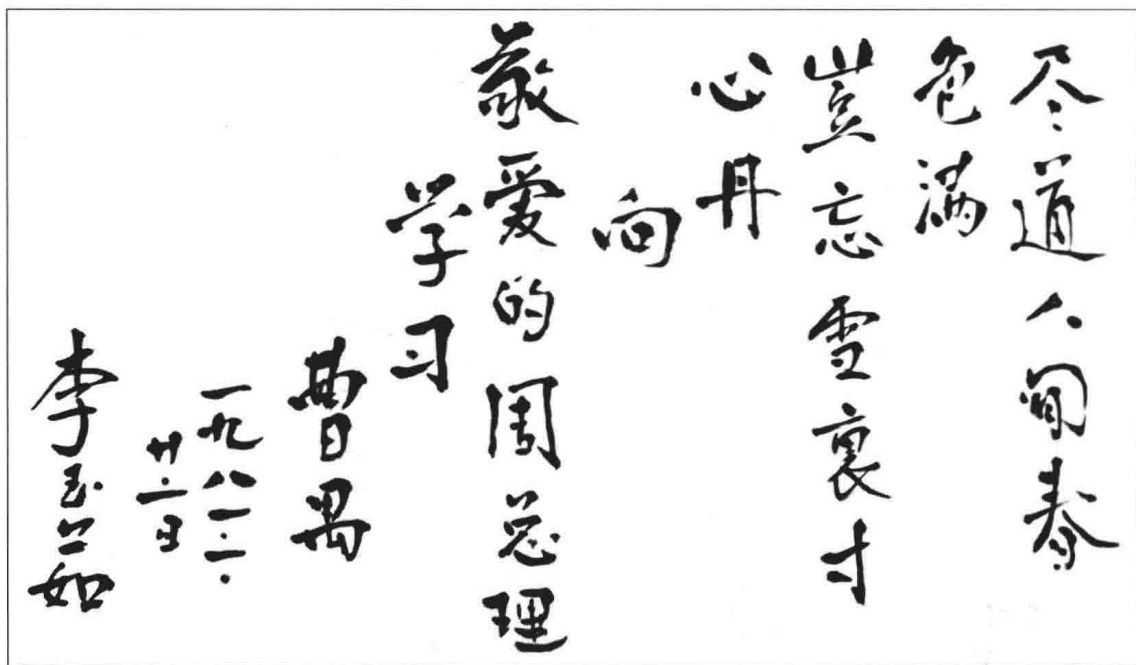 尽道人间春
色满
豈忘雪裏寸
心丹
向
敬爱的周总理
学习
曹禺
一九八一.二.
廿二日
李玉茹